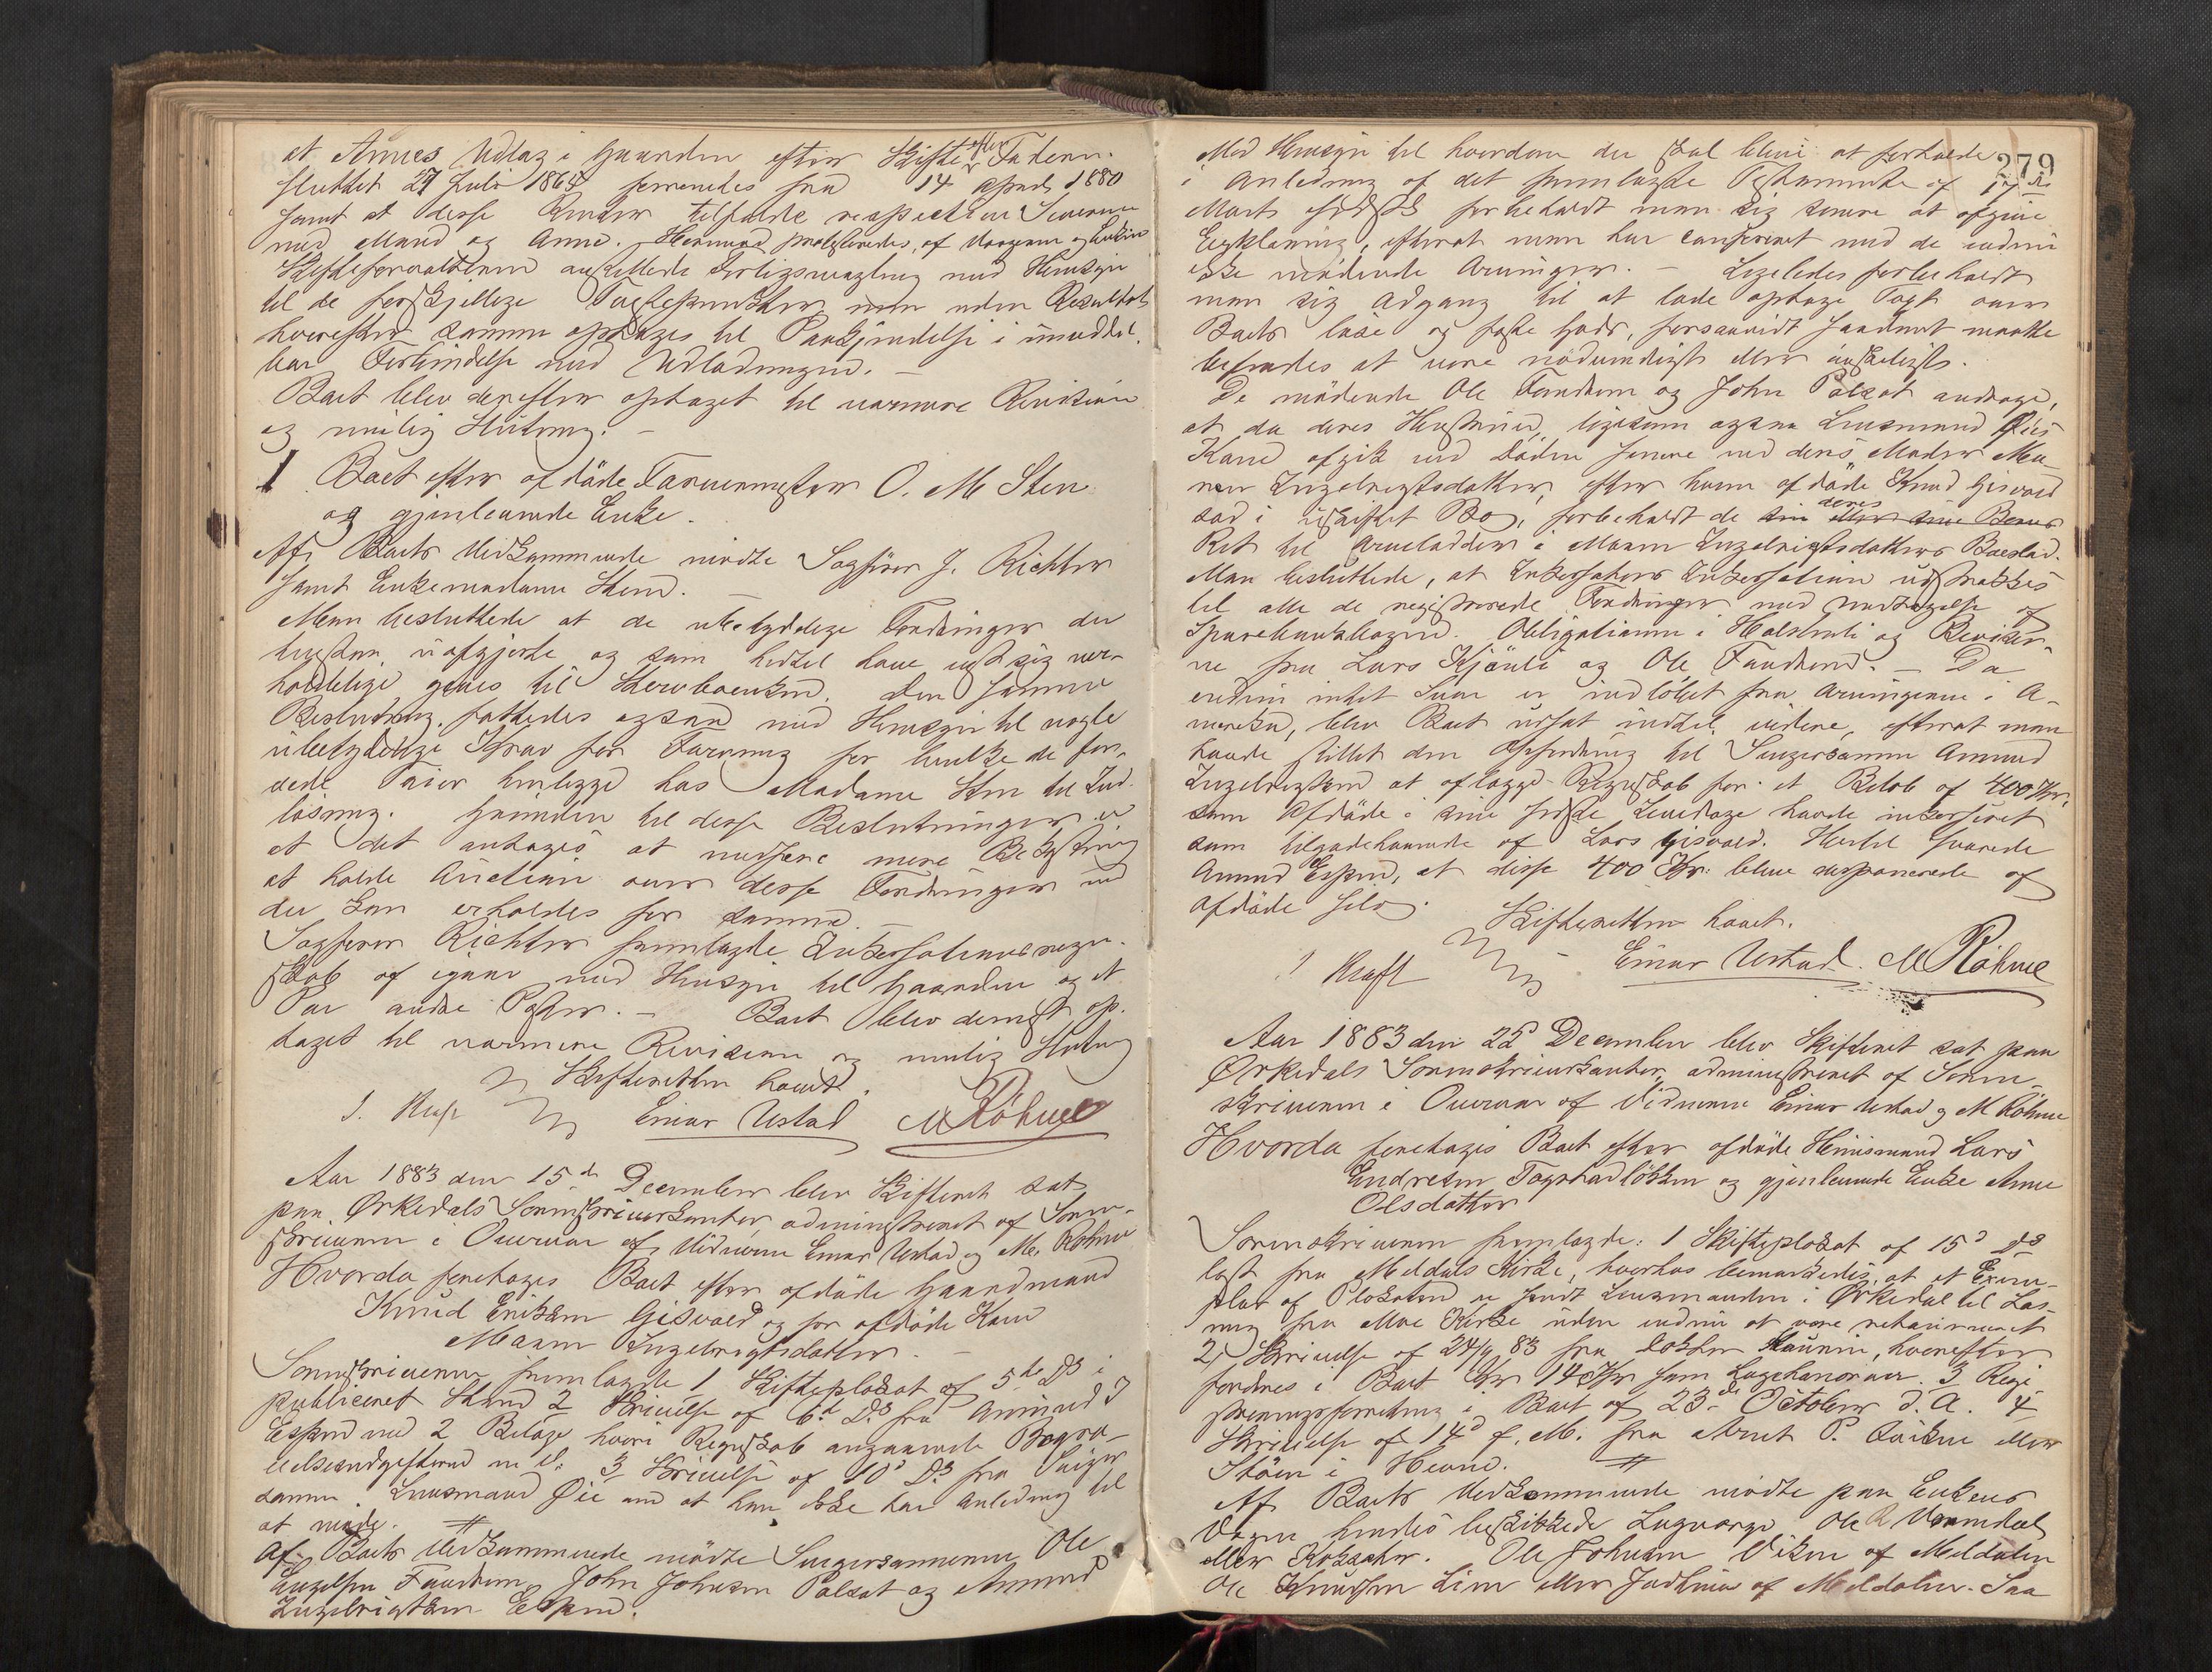 at Annes Udlæg i Gaarden efter Skiftet efter Faderen
sluttet 27 Juli 1865 forrentes fra 14 April 1880
samt at disse Renter tilfaldt respective Sivernne
med Mand og Anne. Hermed protesteredes af Værgerne og Enken
Skifteforvalteren anstillede Forligsmægling med Hensyn
til de forskjellige Tvistepunkter, men uden Resultat
hvorefter samme optages til Paakjendelse i umiddel-
bar Forbindelse med Udlodningen. –
Boet blev derefter optaget til nærmere Revision
og mulig Slutning. –
1 Boet efter afdøde Farvermester O. M Sten
og gjenlevende Enke.
Af Boets Vedkommende mødte Sagfører J. Richter
samt Enkemadame Sten. –
Man besluttede at de ubetydelige Fordringer der
henstaa uafgjorte og som hidtil have vist sig uer-
holdelige gives til Stervboenken. Den samme
Beslutning fattedes ogsaa med Hensyn til nogle
ubetydelige Krav for Farvning for hvilke de far-
vede Tøier henligge hos Madame Sten til Ind-
løsning. Grunden til disse Beslutninger er
at det antages at medføre mere Bekostning
at holde Auction over disse Fordringer end
der kan erholdes for samme. –
Sagfører Richter fremlagde Inkassationsregn-
skab af igaar med Hensyn til Gaarden og et
Par andre Poster. – Boet blev dernæst op-
taget til nærmere Revision og mulig Slutning
Skifteretten hævet.
J. Kraft Einar Ustad M Röhme
Aar 1883 den 15de December blev Skifteret sat
paa Ørkedals Sorenskriverkontor, administreret af Soren-
skriveren i Overvær af Vidnerne Einar Ustad og M. Röhme
Hvorda foretages Boet efter afdøde Gaardmand
Knud Eriksen Gisvold og før afdøde Kone
Maren Ingebrigtsdatter. –
Sorenskriveren fremlagde 1 Skifteplakat af 5te Ds i
publiceret Stand 2 Skrivelse af 6te Ds fra Amund I
Espen med 2 Bilage hvori Regnskab angaaende Begra-
velsesudgifterne m. v. 3 Skrivelse af 10d Ds fra Svoger
sønnen Lensmand Øie om at han ikke har Anledning til
at møde. //
Af Boets Vedkommende mødte Svogersønnerne Ole
Engelsen Fandrem, John Johnsen Polsæt og Amund
Ingebrigtsen Espen.
279
Med Hensyn til hvordan der skal blive at forholde
i Anledning af det fremlagte Testamente af 17de
Marts sidstl. forbeholdt man sig senere at afgive
Erklæring, efterat man har confereret med de endnu
ikke mødende Arvinger. – Ligeledes forbeholdt
man sig Adgang til at lade optage Taxt over
Boets løse og faste Gods, forsaavidt saadant maatte
befindes at være nødvendigt eller ønskeligt.
De mødende Ole Fandrem og John Polsæt androge,
at da deres Hustruer, ligesom ogsaa Lensmand Øies
Kone afgik ved Døden senere end deres Moder Ma-
ren Ingebrigtsdatter, efter hvem afdøde Knud Gisvold
sad i uskiftet Bo, forbeholdt de deres
Ret til Arvelodder i Maren Ingebrigtsdatters Boeslod.
Man besluttede, at Inkassators Inkassation udstrækkes
til alle de registrerede Fordringer med Undtagelse af
Sparebankbogen. Obligationen i Holstvoli og Beviser-
ne fra Lars Kjønli og Ole Fandrem. – Da
endnu intet Svar er indløbet fra Arvingerne i A-
merika, blev Boet udsat indtil videre, efterat man
havde stillet den Opfordring til Svogersønnen Amund
Ingebrigtsen at aflægge Regnskab for et Beløb af 400 Kr,
som Afdøde i sine sidste Levedage havde inkasseret
som tilgodehavende af Lars Gisvold. Hertil svarede
Amund Espen, at disse 400 Kr. bleve disponerede af
afdøde selv.
Skifteretten hævet.
J Kraft Einar Ustad. M Röhme
Aar 1883 den 22d December blev Skifteret sat paa
Ørkedals Sorenskriverkontor, administreret af Soren-
skriveren i Overvær af Vidnerne Einar Ustad og M Röhme
Hvorda foretages Boet efter afdøde Huusmand Lars
Endresen Fagstadløkken og gjenlevende Enke Anne
Olsdatter
Sorenskriveren fremlagde: 1 Skifteplakat af 15d Ds
læst fra Meldals Kirke, hvorhos bemærkedes, at et Exem-
plar af Plakaten er sendt Lensmanden i Ørkedal til Læs-
ning fra Moe Kirke uden endnu at være returneret
2, Skrivelse af 24/9 83 fra Doktor, hvorefter
fordres i Boet Kr 14 Kr som Lægehonorar. 3 Regi-
streringsforretning i Boet af 23de October d. A. 4
Skrivelse af 14d f. M. fra Arnt P. eller
Støen i Hevne. //
Af Boets Vedkommende mødte paa Enkens
Vegne hendes beskikkede Laugværge Ole
eller. Ole Johnsen Viken af Meldalen
Ole Knudsen Lien eller af Meldalen. Saa